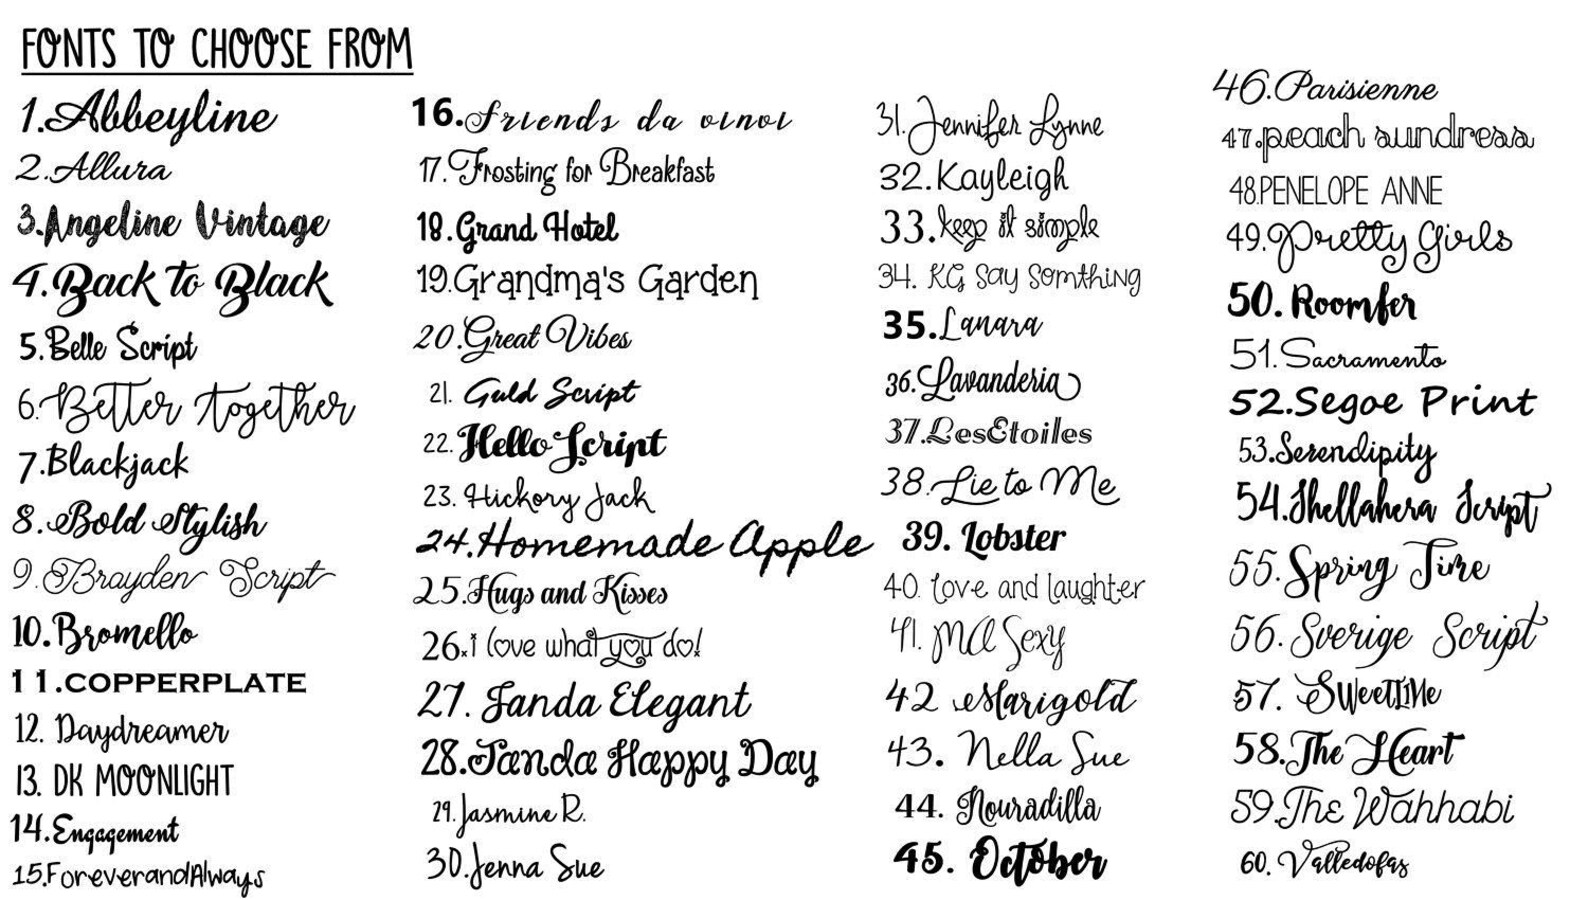 FONTS TO CHOOSE FROM
1.Abbeyline
2.Allura
3.Angeline Vintage
4.Back to Black
5.Belle Script
6.Better together
7.Blackjack
8.Bold Stylish
9.Brayden Script
10.Bromello
11.COPPERPLATE
12. Daydreamer
13. DK MOONLIGHT
14.Engagement
15.ForeverandAlways
16.Friends da vinci
17.Frosting for Breakfast
18.Grand Hotel
19.Grandma's Garden
20.Great Vibes
21. Guld Script
22.Hello Script
23. Hickory Jack
24.Homemade Apple
25.Hugs and Kisses
26.i love what you do!
27. Janda Elegant
28.Janda Happy Day
29.Jasmine R.
30.Jenna Sue
31.Jennifer Lynne
32.Kayleigh
33.keep it simple
34. KG Say Somthing
35.Lanara
36.Lavanderia
37.LesEtoiles
38.Lie to Me
39. Lobster
40. love and laughter
41. MA Sexy
42 Marigold
43. Nella Sue
44. Nouradilla
45. October
46.Parisienne
47.peach sundress
48.PENELOPE ANNE
49.Pretty Girls
50. Roomfer
51.Sacramento
52.Segoe Print
53.Serendipity
54.Shellahera Script
55.Spring Time
56.Sverige Script
57. SweetTime
58.The Heart
59.The Wahhabi
60. Valledofas